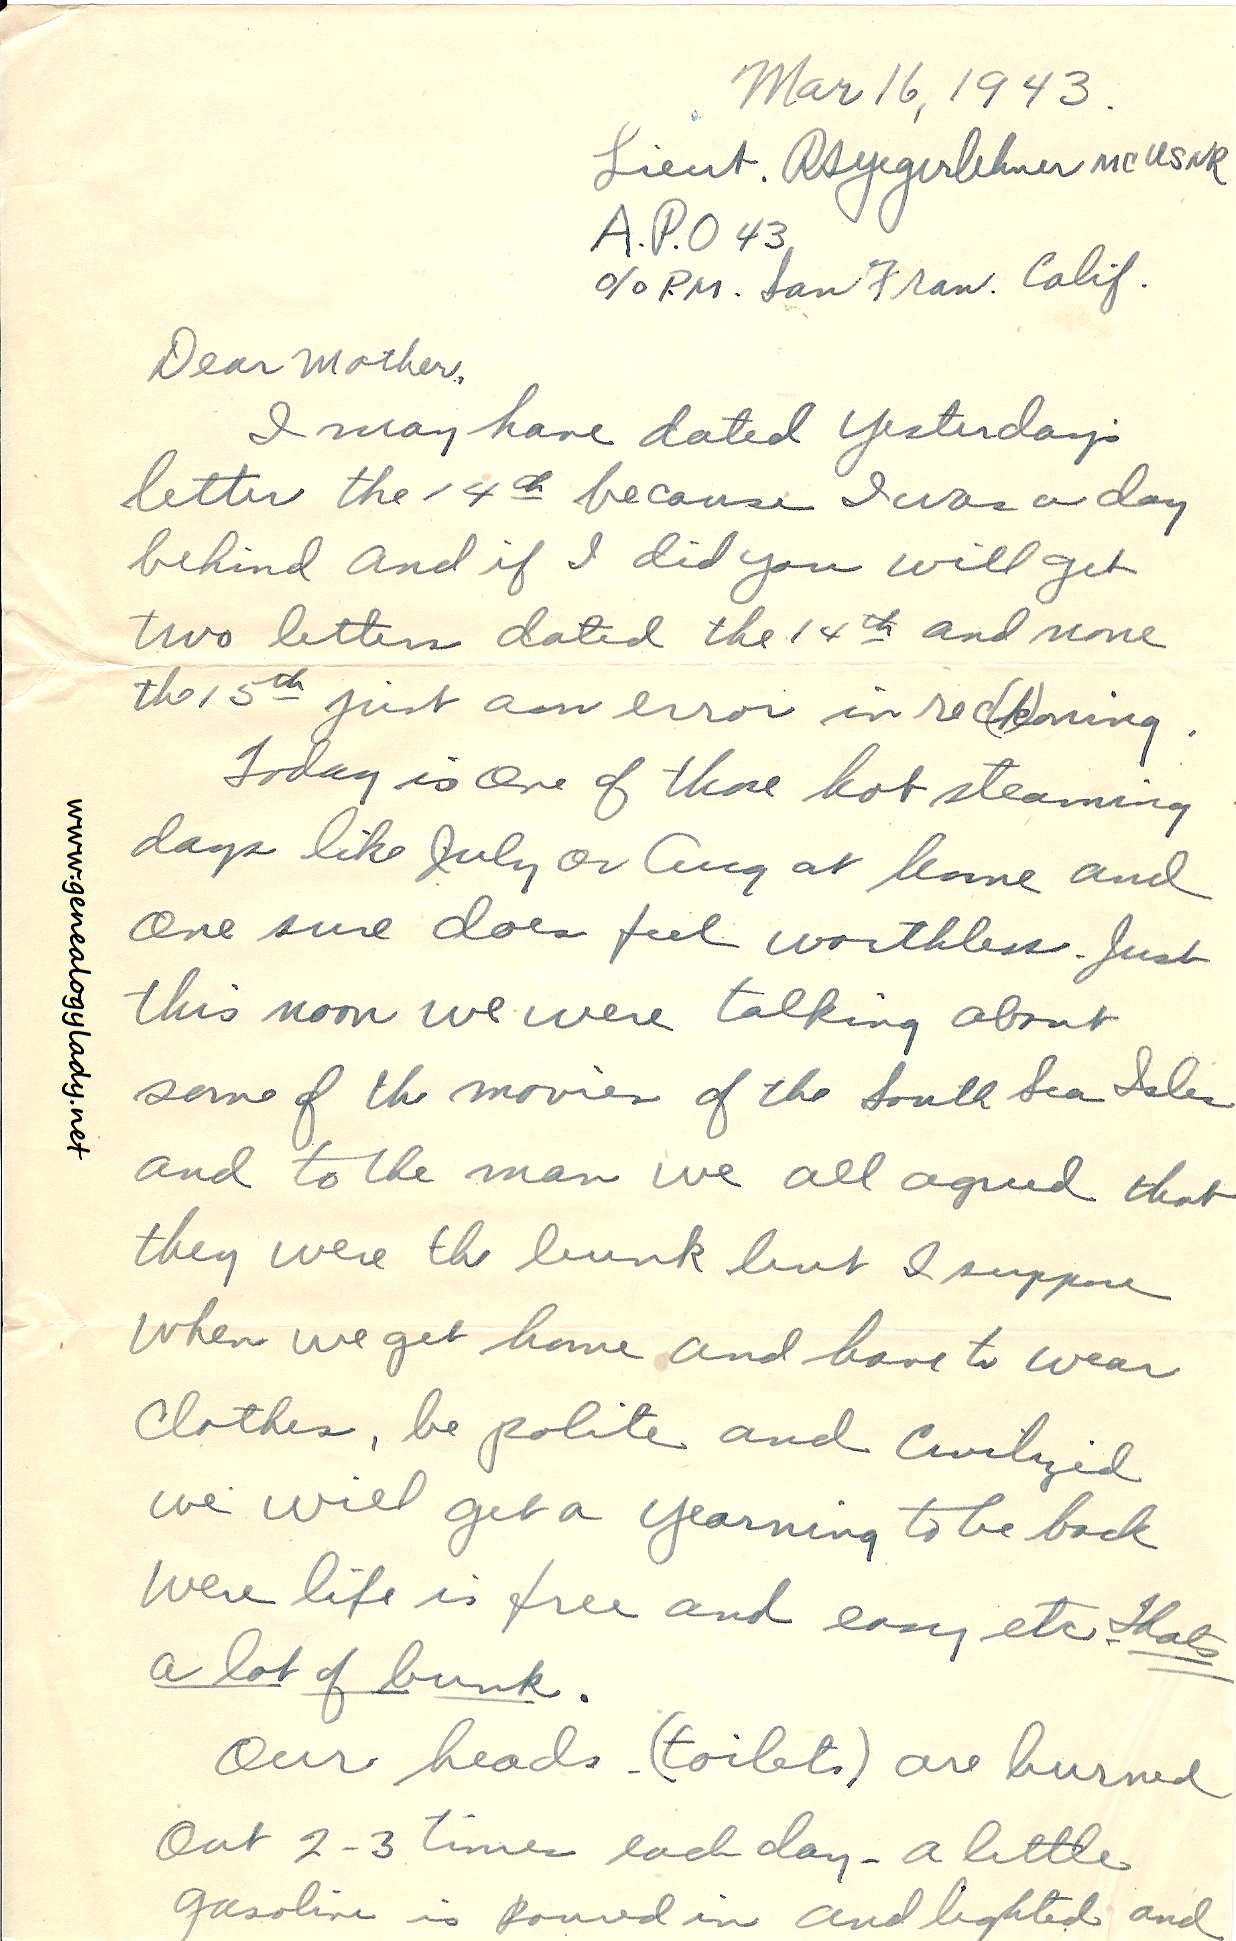 Mar 16, 1943.
Lieut. RSYegerlehner MC USNR
A.P.O 43
c/o P.M. San Fran. Calif.
Dear Mother,
I may have dated yesterdays
letter the 14th because I was a day
behind and if I did you will get
two letters dated the 14th and none
the 15th just an error in rec(k)oning.
Today is one of those hot steaming
days like July or Aug at home and
one sure does feel worthless. Just
this noon we were talking about
some of the movies of the South Sea Isles
and to the man we all agreed that
they were the bunk but I suppose
when we get home and have to wear
clothes, be polite and civilized
we will get a yearning to be back
were life is free and easy etc. Thats
a lot of bunk.
Our heads - (toilets) are burned
out 2-3 times each day - a little
gasoline is poured in and lighted and
www.genealogylady.net